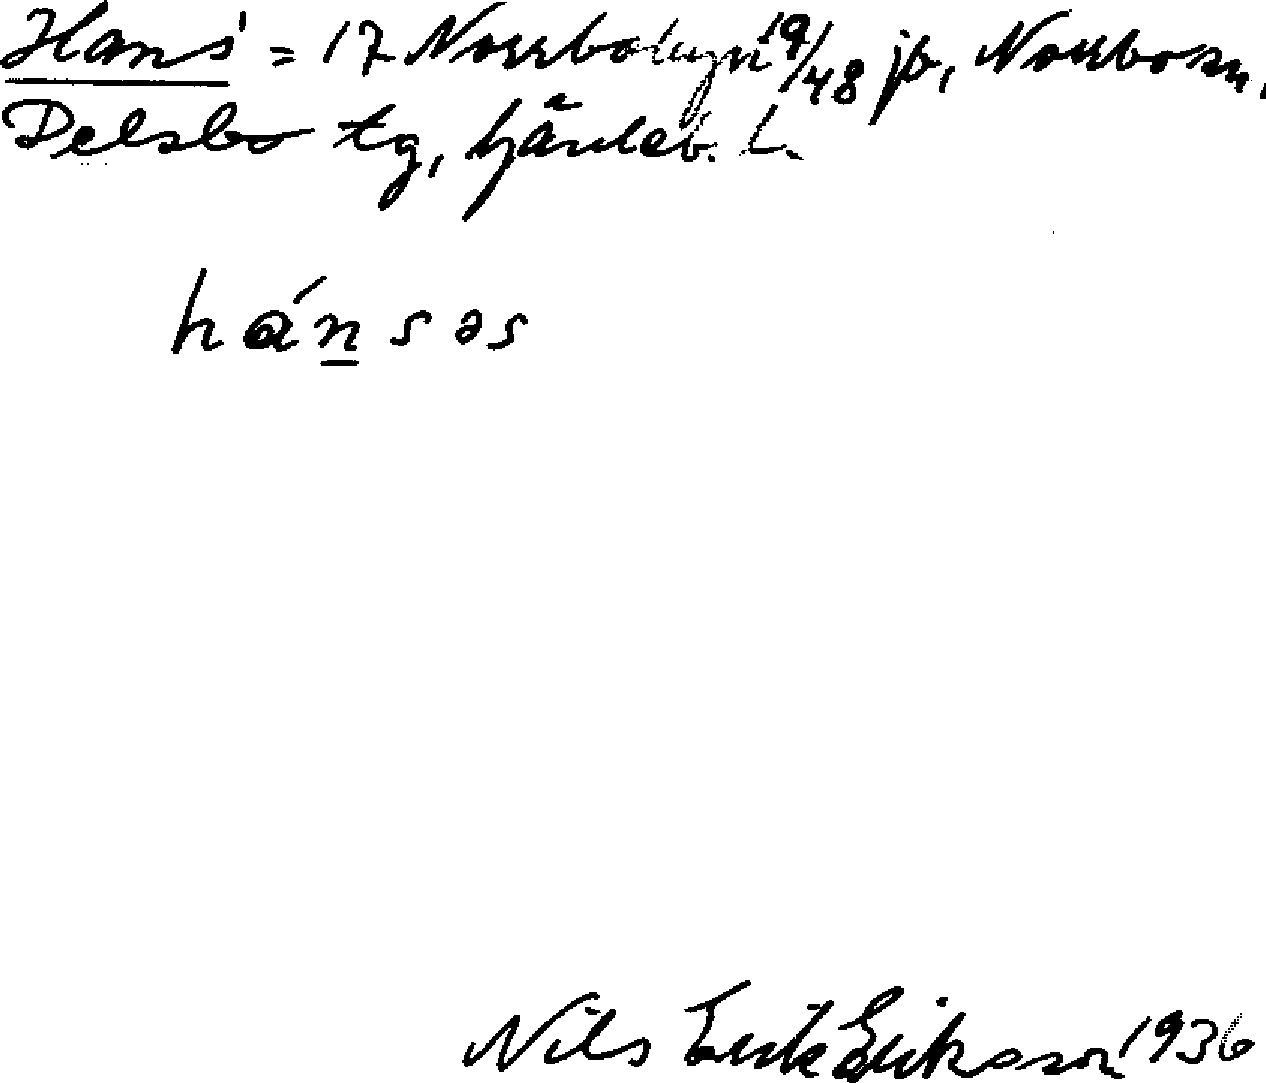 Hans' = 17 Norrbobyn 19/48 jb, Norrbo sn,
Delsbo tg, Gävleb. L.
hánsəs
Nils Erik Eriksson 1936